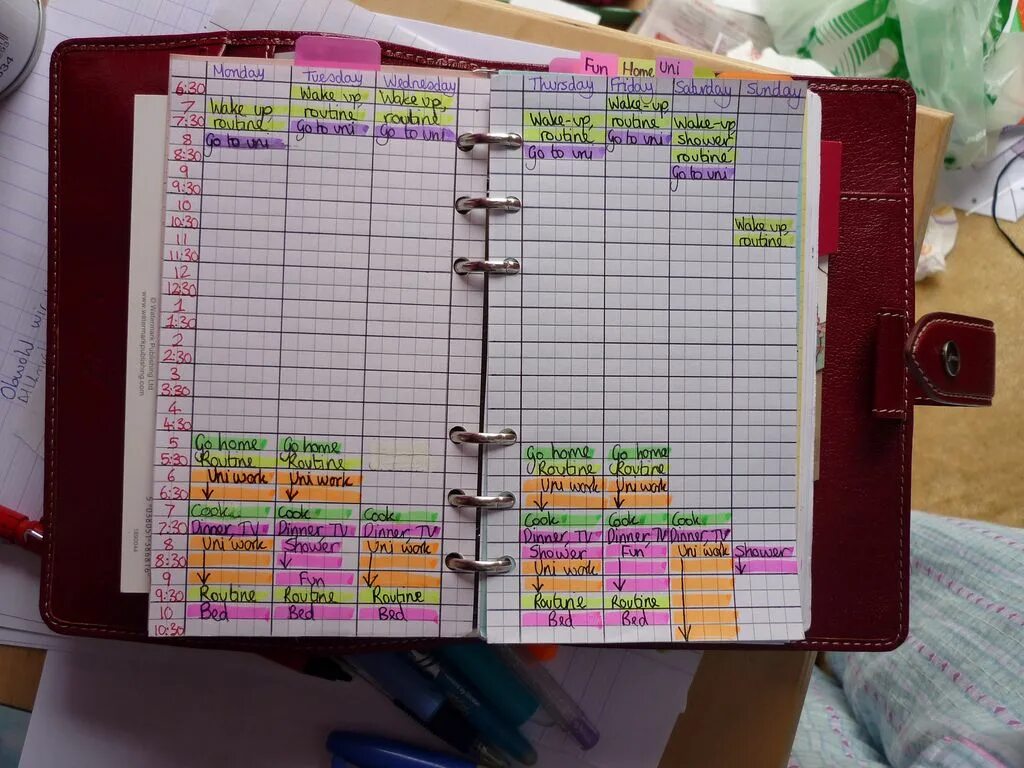 Fun Home Uni
Monday Tuesday Wednesday Thursday Friday Saturday Sunday
6:30 Wake up, Wake up, Wake-up
7 Wake up routine routine Wake-up, routine Wake-up,
7:30 routine Go to uni Go to uni routine Go to uni shower
8 Go to uni Go to uni routine
8:30 Go to uni
9
9:30
10
10:30 Wake up,
11 routine
11:30
12
12:30
1
1:30
2
2:30
3
3:30
4
4:30
5 Go home Go home Go home Go home
5:30 Routine Routine Routine Routine
6 Uni work Uni work Uni work Uni work
6:30
7 Cook Cook Cook Cook Cook Cook
7:30 Dinner, TV Dinner, TV Dinner, TV Dinner, TV Dinner, TV Dinner, TV
8 Uni work Shower Uni work Shower Fun Uni work Shower
8:30 Uni work
9 Fun
9:30 Routine Routine Routine Routine Routine
10 Bed Bed Bed Bed Bed
10:30
© Watermark Publishing Ltd
www.watermarkpublishing.com